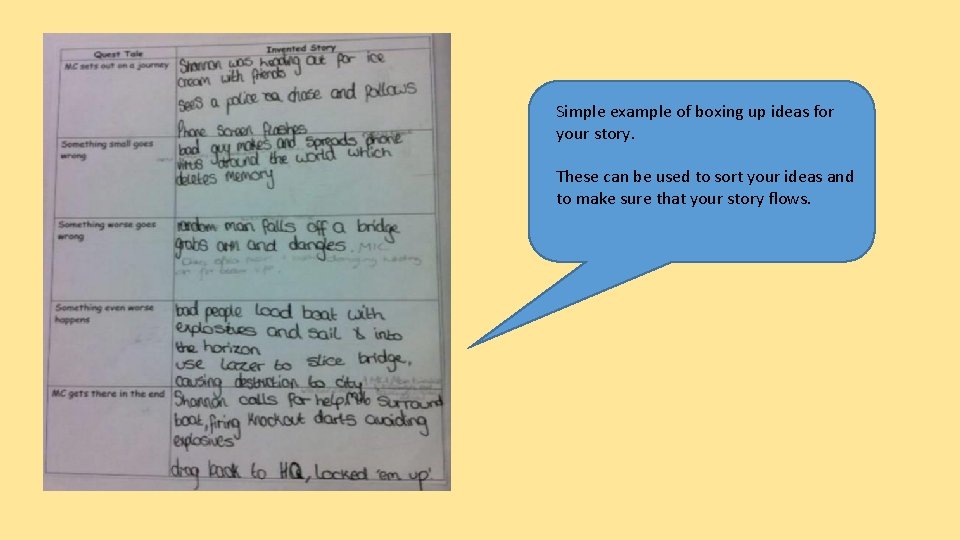 Quest Tale
Invented Story
MC sets out on a journey
Shannon was heading out for ice
cream with friends
sees a police car chase and follows
Phone screen flashes
Something small goes
wrong
bad guy makes and spreads phone
virus around the world which
deletes memory
Something worse goes
wrong
random man falls off a bridge
grabs arm and dangles. MIC
Something even worse
happens
bad people load boat with
explosives and sail & into
the horizon
use lazer to slice bridge,
causing destruction to city
MC gets there in the end
Shannon calls for help, surround
boat, firing knockout darts avoiding
explosives
drag back to HQ, locked 'em up'
Simple example of boxing up ideas for
your story.
These can be used to sort your ideas and
to make sure that your story flows.